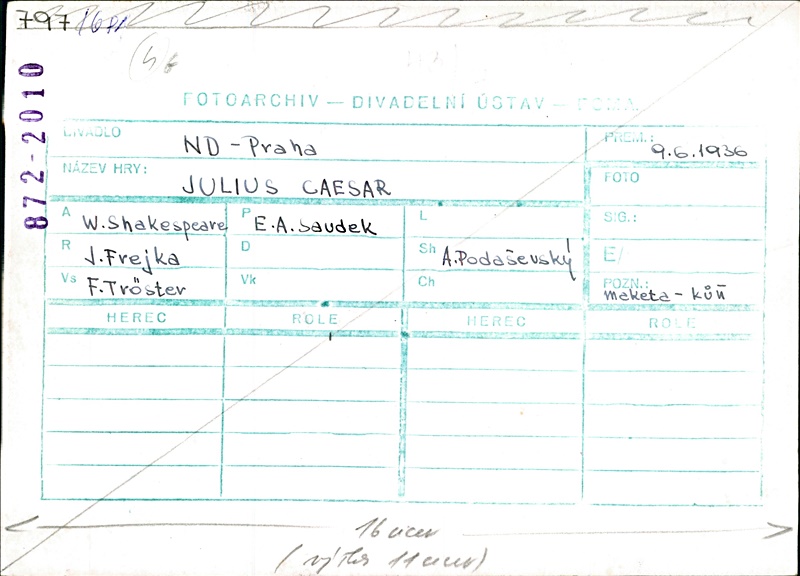 797
872-2010
FOTOARCHIV — DIVADELNÍ ÚSTAV —
DIVADLO ND - Praha PREM.: 9.6.1936
NÁZEV HRY: JULIUS CAESAR FOTO
A W. Shakespeare P E.A. Saudek L SIG.:
R J. Frejka D Sh A. Podaševský E/
Vs F. Tröster Vk Ch POZN.: maketa - kůň
HEREC ROLE HEREC ROLE
16
11